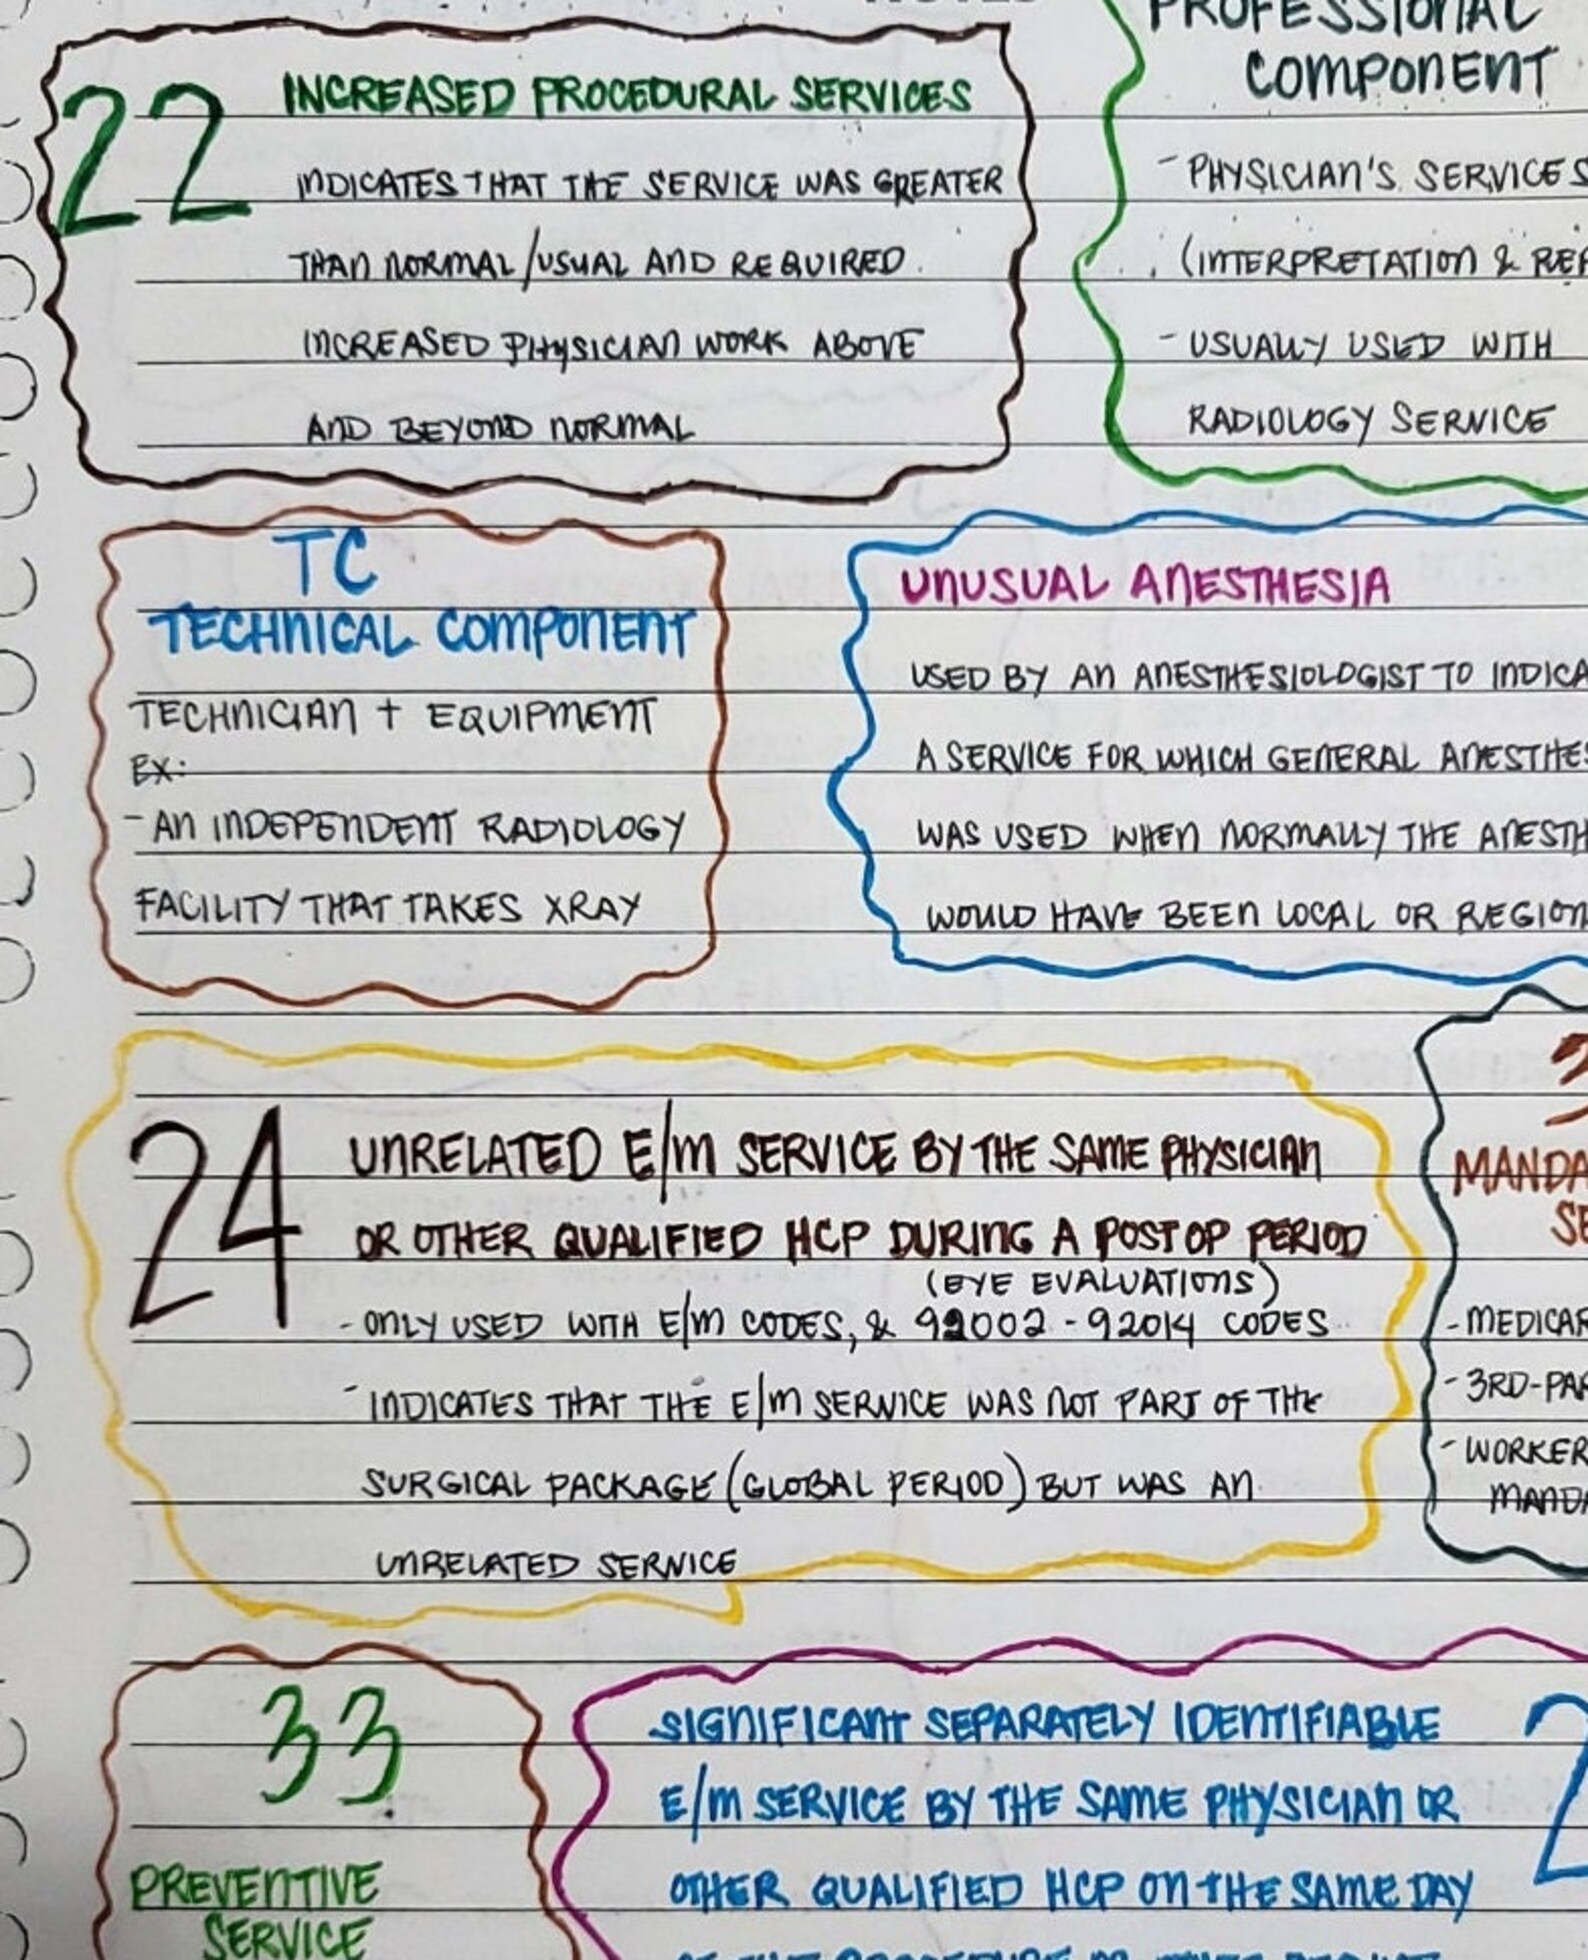 22
INCREASED PROCEDURAL SERVICES
INDICATES THAT THE SERVICE WAS GREATER
THAN NORMAL/USUAL AND REQUIRED
INCREASED PHYSICIAN WORK ABOVE
AND BEYOND NORMAL
PROFESSIONAL
COMPONENT
- PHYSICIAN'S SERVICES
(INTERPRETATION &
- USUALLY USED WITH
RADIOLOGY SERVICE
TC
TECHNICAL COMPONENT
TECHNICIAN + EQUIPMENT
EX:
- AN INDEPENDENT RADIOLOGY
FACILITY THAT TAKES XRAY
UNUSUAL ANESTHESIA
USED BY AN ANESTHESIOLOGIST TO
A SERVICE FOR WHICH GENERAL
WAS USED WHEN NORMALLY THE
WOULD HAVE BEEN LOCAL OR
24
UNRELATED E/M SERVICE BY THE SAME PHYSICIAN
OR OTHER QUALIFIED HCP DURING A POST OP PERIOD
(EYE EVALUATIONS)
- ONLY USED WITH E/M CODES, & 92002 - 92014 CODES
- INDICATES THAT THE E/M SERVICE WAS NOT PART OF THE
SURGICAL PACKAGE (GLOBAL PERIOD) BUT WAS AN
UNRELATED SERVICE
33
PREVENTIVE
SERVICE
SIGNIFICANT SEPARATELY IDENTIFIABLE
E/M SERVICE BY THE SAME PHYSICIAN OR
OTHER QUALIFIED HCP ON THE SAME DAY